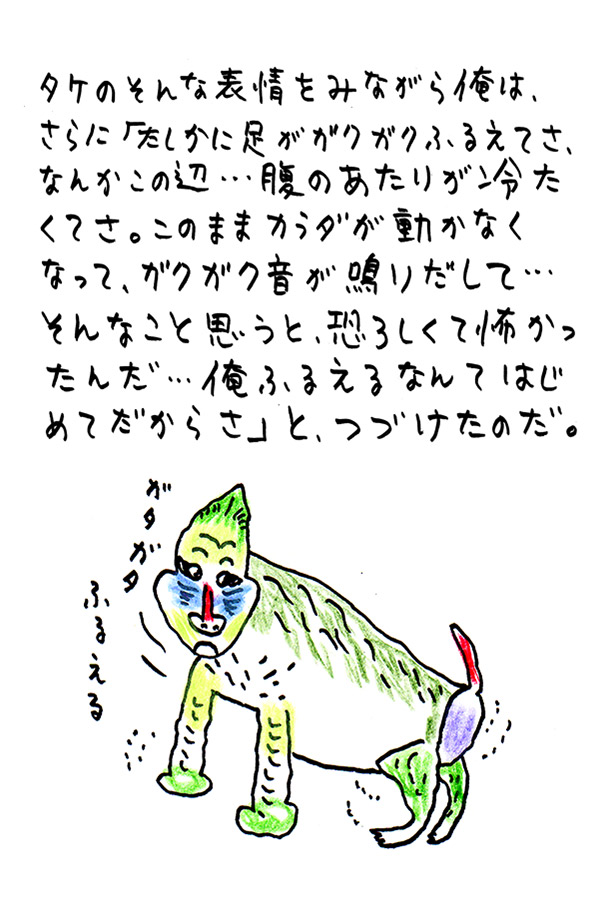 タケのそんな表情をみながら俺は、
さらに「たしかに足がガクガクふるえてさ、
なんかこの辺…腹のあたりが冷た
くてさ。このままカラダが動かなく
なって、ガクガク音が鳴りだして…
そんなこと思うと、恐ろしくて怖かっ
たんだ…俺ふるえるなんてはじ
めてだからさ」と、つづけたのだ。
ガタガタ
ふるえる